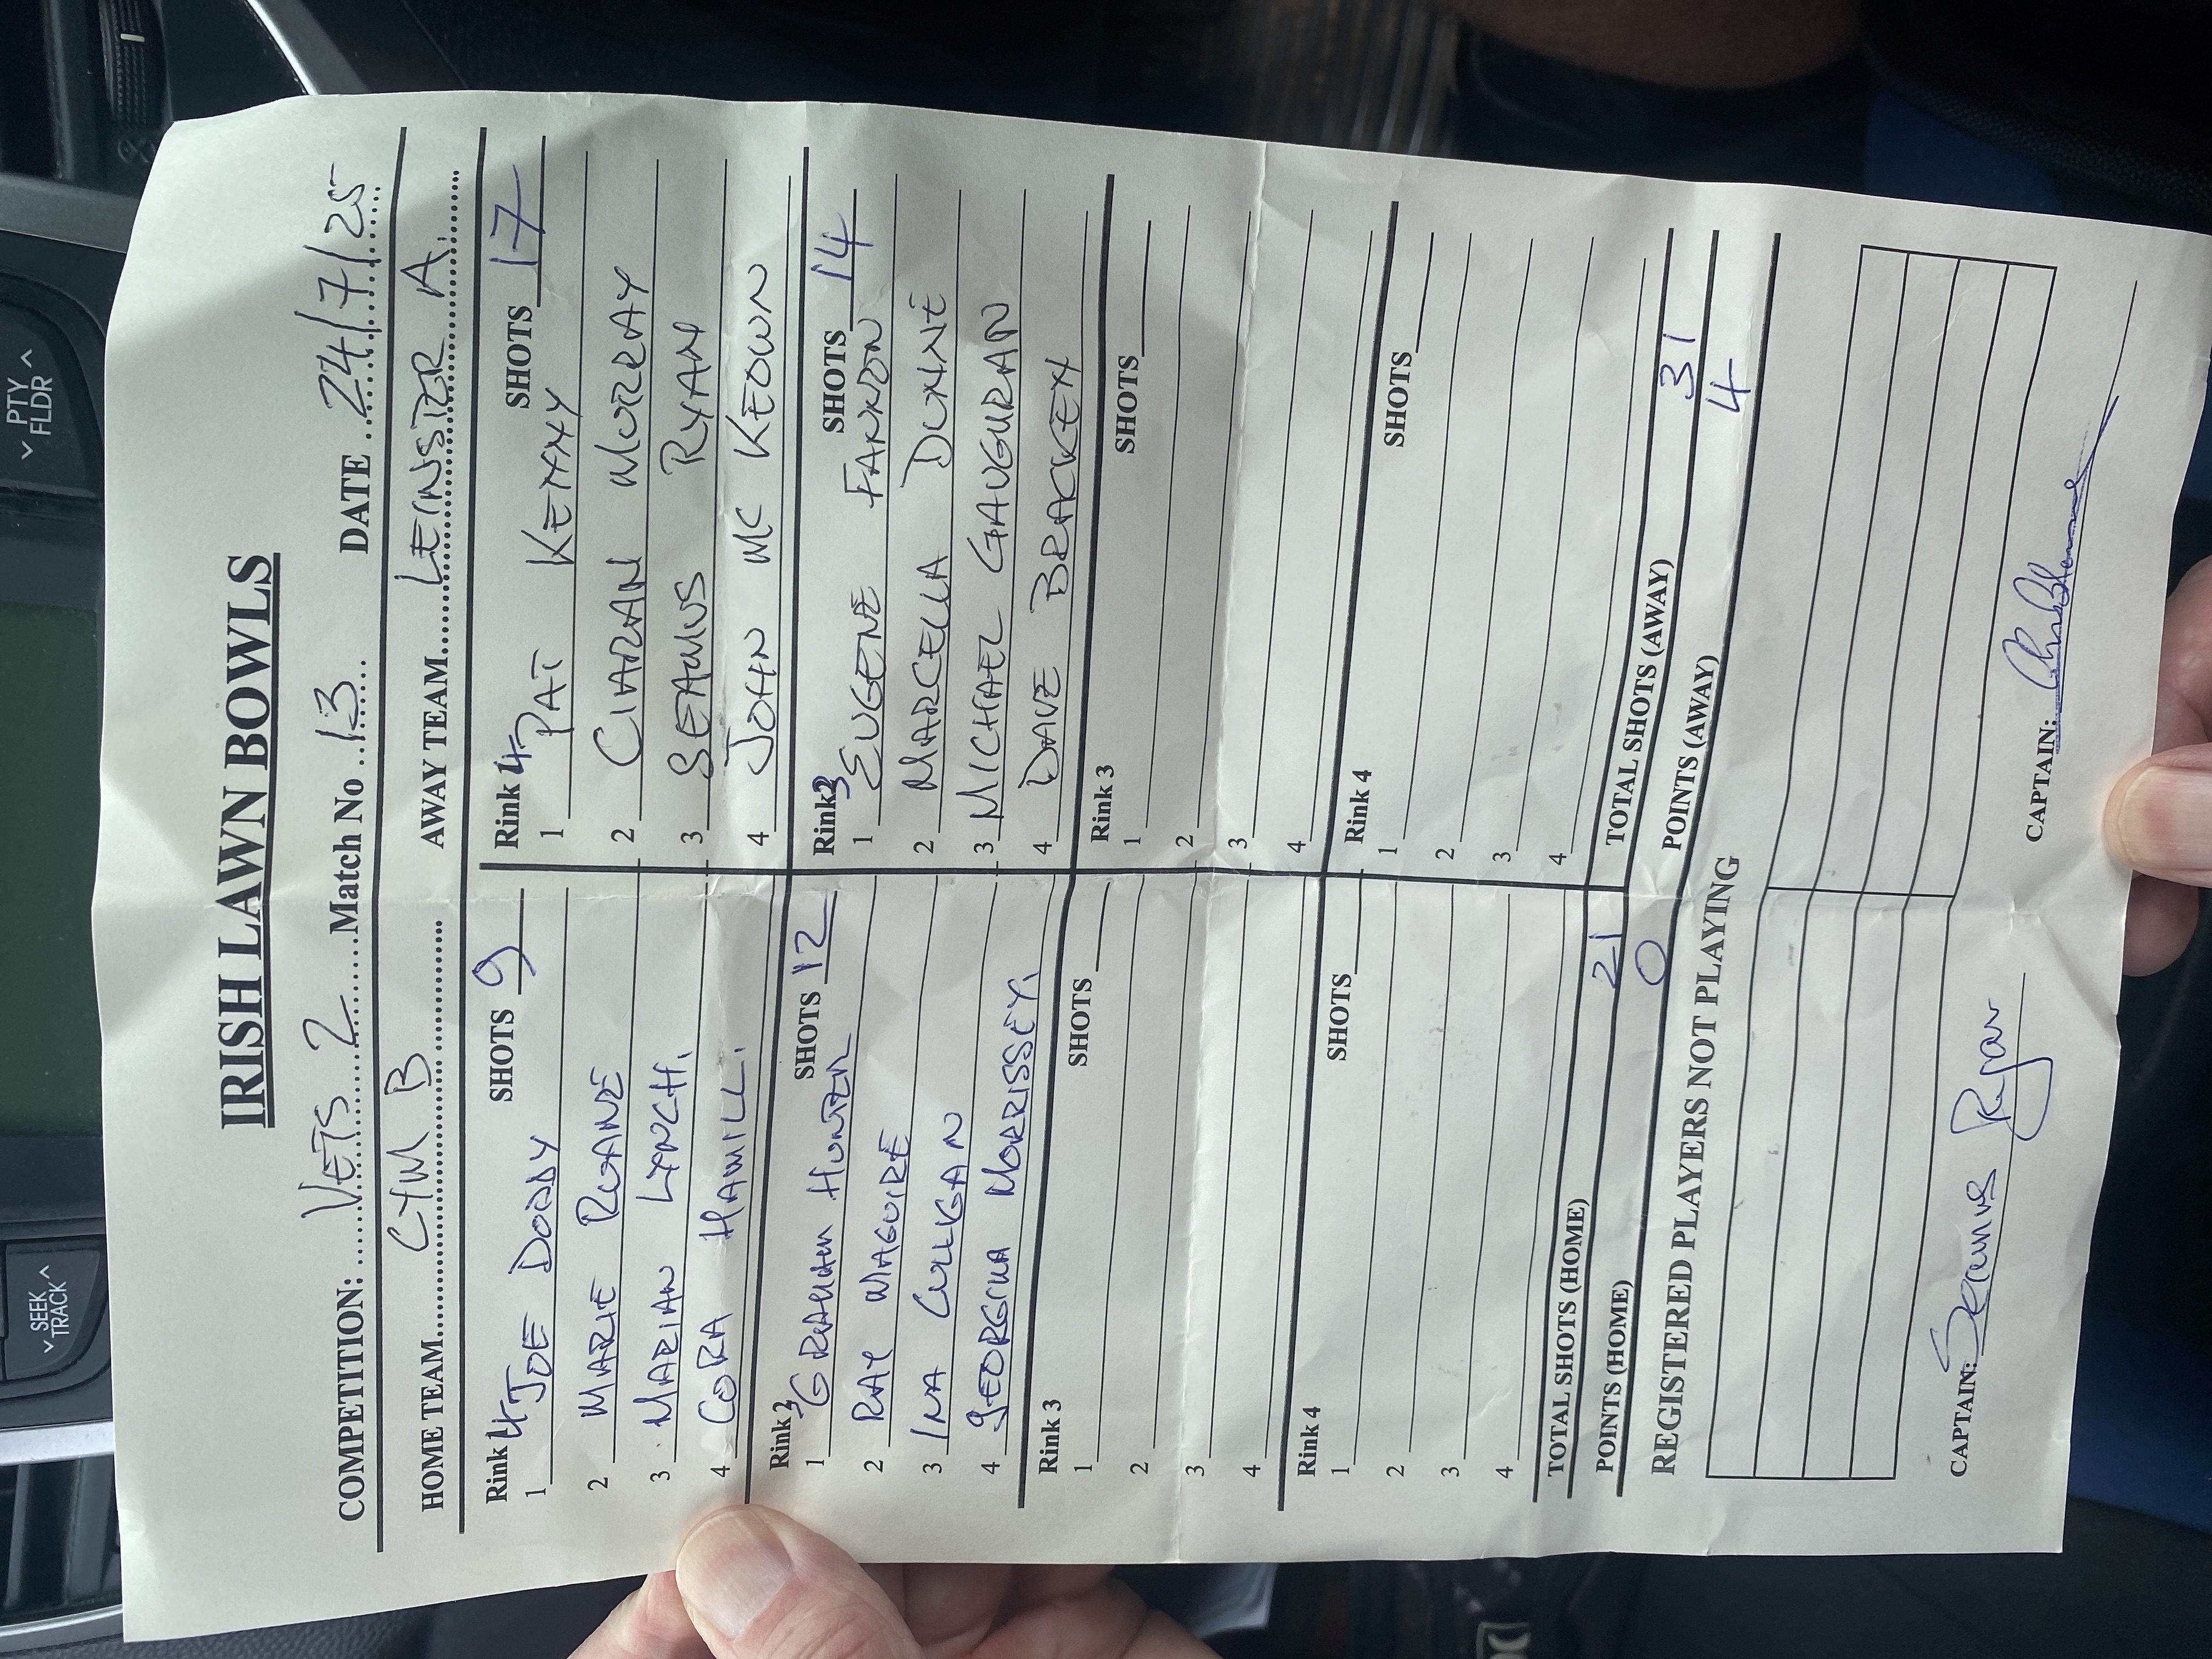 IRISH LAWN BOWLS
COMPETITION: VETS 2 Match No 13 DATE 24/7/25
HOME TEAM CYM B AWAY TEAM LEINSTER A.
Rink 4 SHOTS 9
1 JOE DOODY
2 MARIE RUANE
3 MARIAN LYNCH.
4 CORA HAMILL.
Rink 4 SHOTS 17
1 PAT KENNY
2 CIARAN MURRAY
3 SEAMUS RYAN
4 JOHN MC KEOWN
Rink 3 SHOTS 12
1 GRAHAM HUNTER
2 RAY MAGUIRE
3 INA CULLIGAN
4 GEORGINA MORRISSEY.
Rink 3 SHOTS 14
1 EUGENE FANNON
2 MARCELLA DUNNE
3 MICHAEL GAUGHRAN
4 DAVE BRACKEN
Rink 3 SHOTS
1
2
3
4
Rink 3 SHOTS
1
2
3
4
Rink 4 SHOTS
1
2
3
4
Rink 4 SHOTS
1
2
3
4
TOTAL SHOTS (HOME) 21 TOTAL SHOTS (AWAY) 31
POINTS (HOME) 0 POINTS (AWAY) 4
REGISTERED PLAYERS NOT PLAYING
CAPTAIN: Seamus Ryan CAPTAIN:
SEEK
TRACK
PTY
FLDR